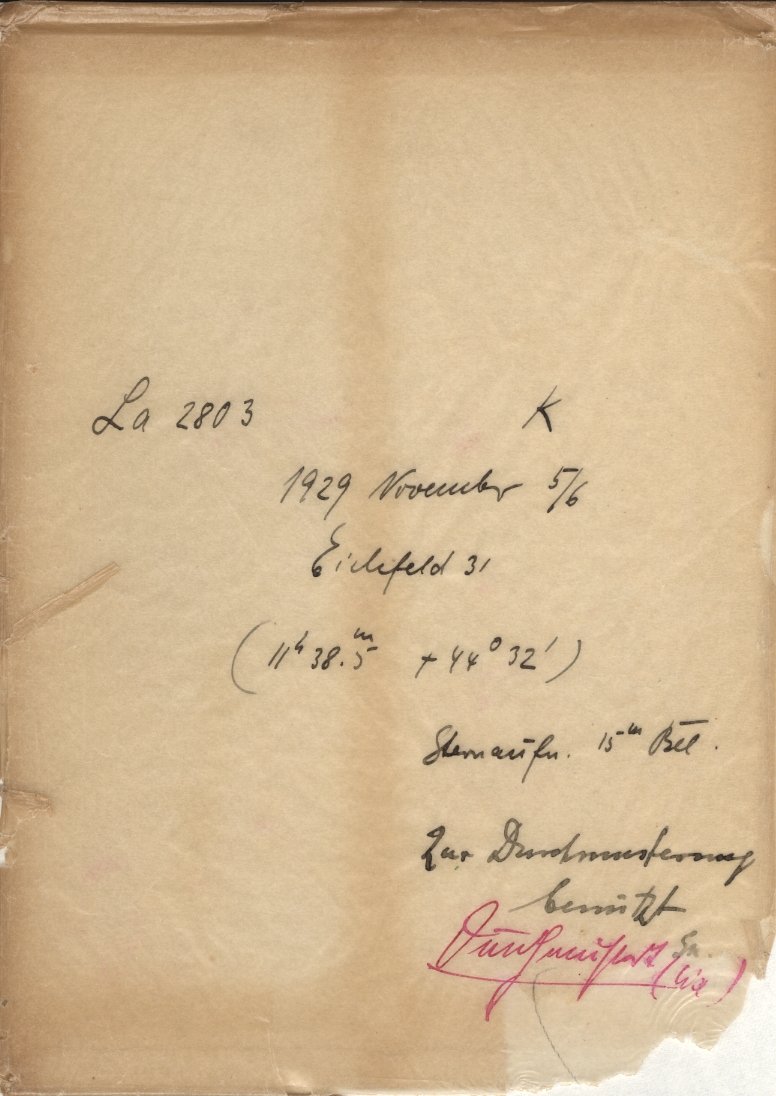 La 2803 K
1929 November 5/6
Eichfeld 31
(11ʰ 38.ᵐ5 + 44⁰ 32')
Sternaufn. 15ᵐ Bel.
Zur Durchmusterung
benützt
Durchmustert